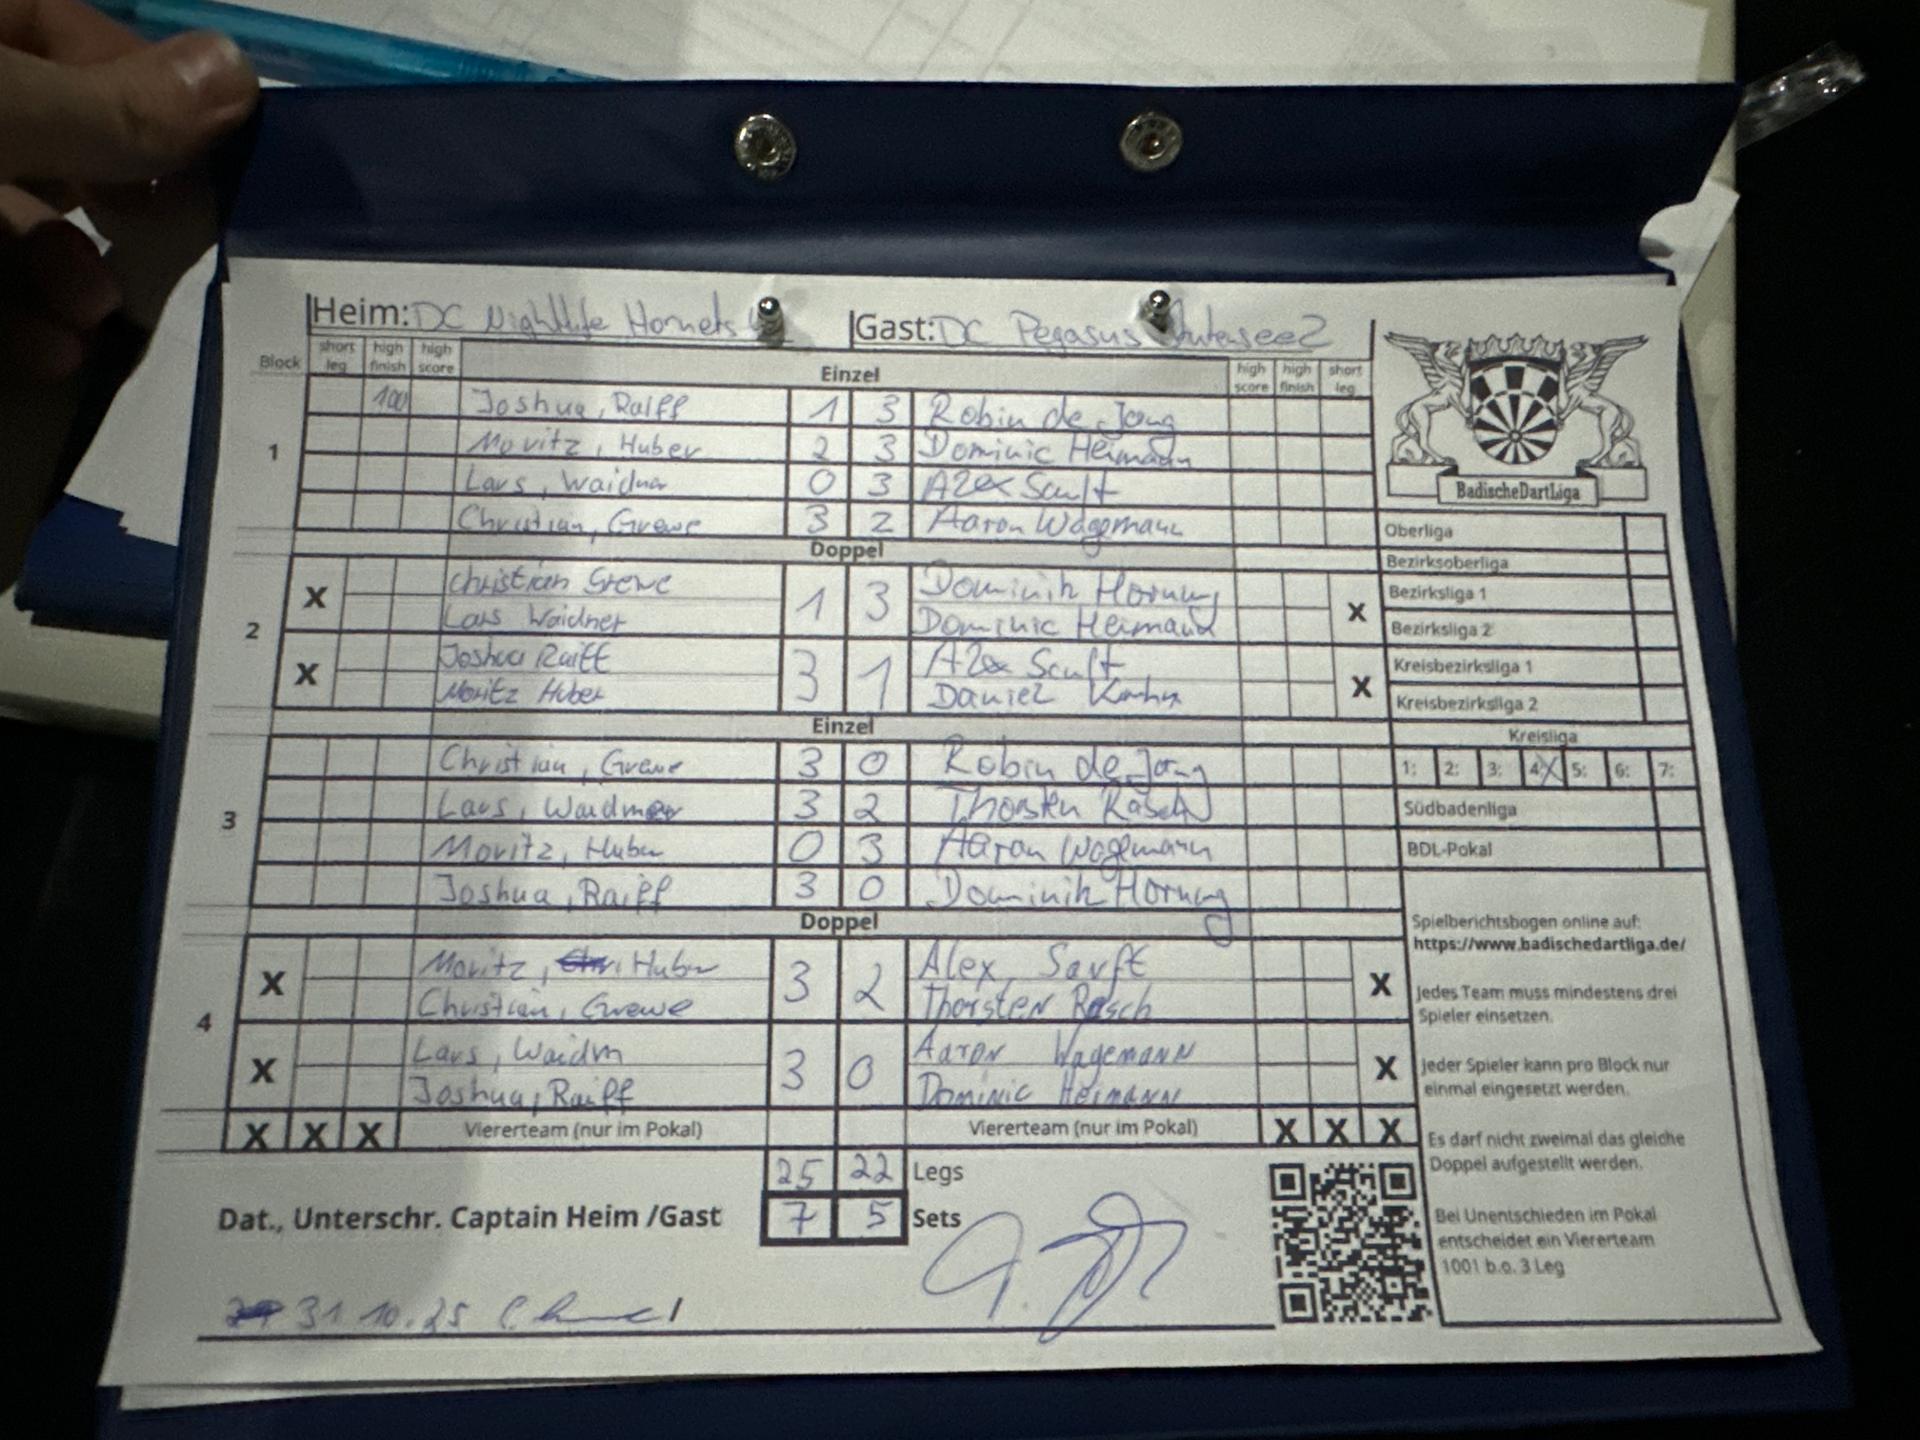 Heim: DC Nightlife Hornets Gast: DC Pegasus 2
Block short leg high finish high score Einzel high score high finish short leg
1
100 Joshua, Raiff 1 3 Robin de Jong
Moritz, Huber 2 3 Dominic Heimann
Lars, Waidner 0 3 Alex Sauft
Christian, Grewe 3 2 Aaron Wagemann
Doppel
2
X Christian Grewe 1 3 Dominik Hornung X
Lars Waidner Dominic Heimann
X Joshua Raiff 3 1 Alex Sauft X
Moritz Huber Daniel
Einzel
3
Christian, Grewe 3 0 Robin de Jong
Lars, Waidner 3 2 Thorsten Rasch
Moritz, Huber 0 3 Aaron Wagemann
Joshua, Raiff 3 0 Dominik Hornung
Doppel
4
X Moritz, Huber 3 2 Alex Sauft X
Christian, Grewe Thorsten Rasch
X Lars, Waidn 3 0 Aaron Wagemann X
Joshua, Raiff Dominic Heimann
X X X Viererteam (nur im Pokal) Viererteam (nur im Pokal) X X X
25 22 Legs
Dat., Unterschr. Captain Heim /Gast 7 5 Sets
31.10.25
BadischeDartLiga
Oberliga
Bezirksoberliga
Bezirksliga 1
Bezirksliga 2
Kreisbezirksliga 1
Kreisbezirksliga 2
Kreisliga
1: 2: 3: 4: X 5: 6: 7:
Südbadenliga
BDL-Pokal
Spielberichtsbogen online auf:
https://www.badischedartliga.de/
Jedes Team muss mindestens drei
Spieler einsetzen.
Jeder Spieler kann pro Block nur
einmal eingesetzt werden.
Es darf nicht zweimal das gleiche
Doppel aufgestellt werden.
Bei Unentschieden im Pokal
entscheidet ein Viererteam
1001 b.o. 3 Leg